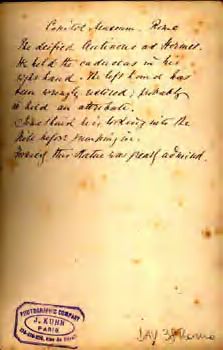 Capitol Museum. Rome
The deified Antinous as Hermes.
He held the caduceus in his
right hand. The left hand has
been wrongly restored; probably
it held an attribute.
Some think he is looking into the
Nile before jumping in.
Formerly this statue was greatly admired.
PHOTOGRAPHIC COMPANY
J. KUHN
PARIS